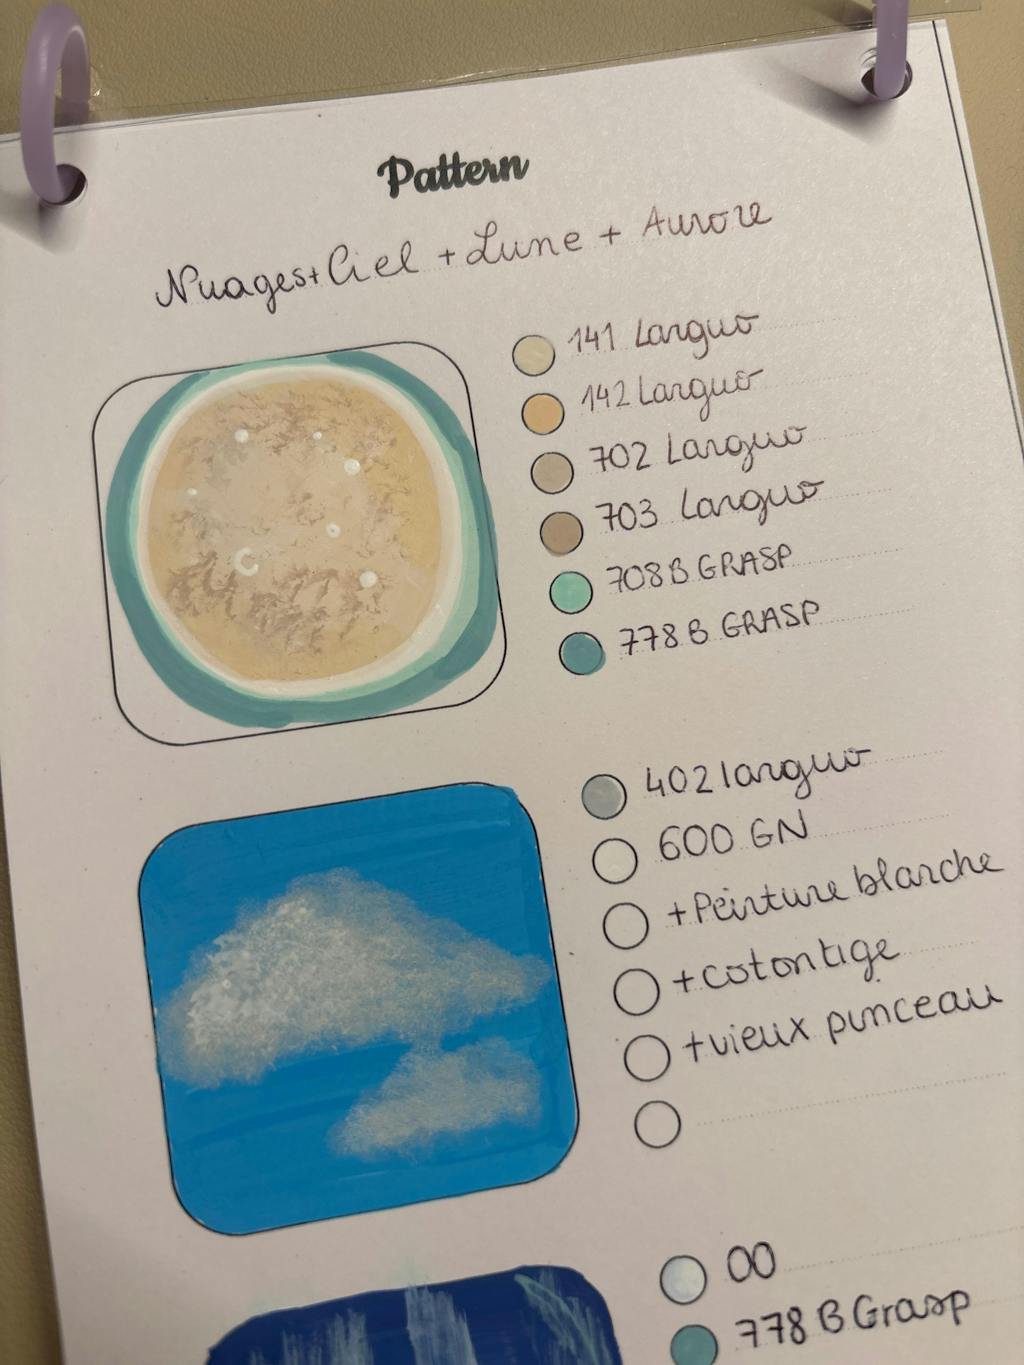 Pattern
Nuages + Ciel + Lune + Aurore
141 Larguo
142 Larguo
702 Larguo
703 Larguo
708B GRASP
778B GRASP
402 larguo
600 GN
+ Peinture blanche
+ coton tige
+ vieux pinceau
00
778 B Grasp